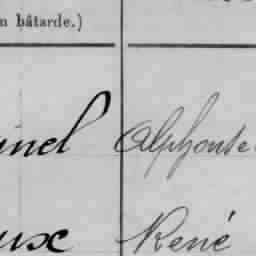 n bâtarde.)
inel Alphonse
eux René